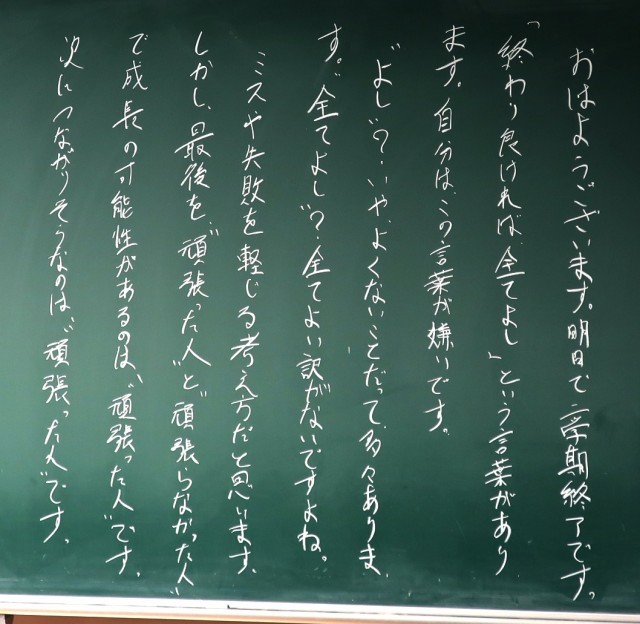 おはようございます。明日で二学期終了です。
「終わり良ければ、全てよし」という言葉があり
ます。自分は、この言葉が嫌いです。
“よし”?いや、よくないことだって、多々ありま
す。“全てよし”?全てよい訳がないですよね。
ミスや失敗を軽じる考え方だと思います。
しかし、最後を、“頑張った人”と“頑張らなかった人”
で成長の可能性があるのは、“頑張った人”です。
次につながりそうなのは、“頑張った人”です。